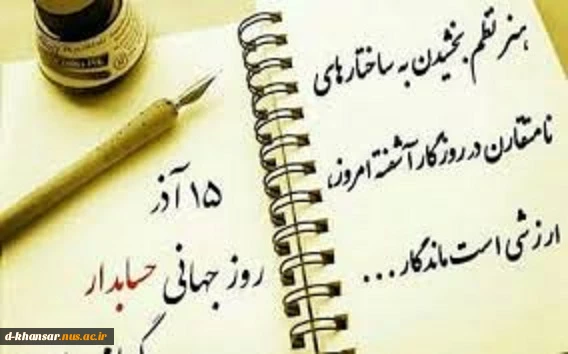 هنر نظم بخشیدن به ساختارهای
نامتقارن در روزگار آشفته امروز،
ارزشی است ماندگار ...
۱۵ آذر
روز جهانی حسابدار
d-khansar.nus.ac.ir